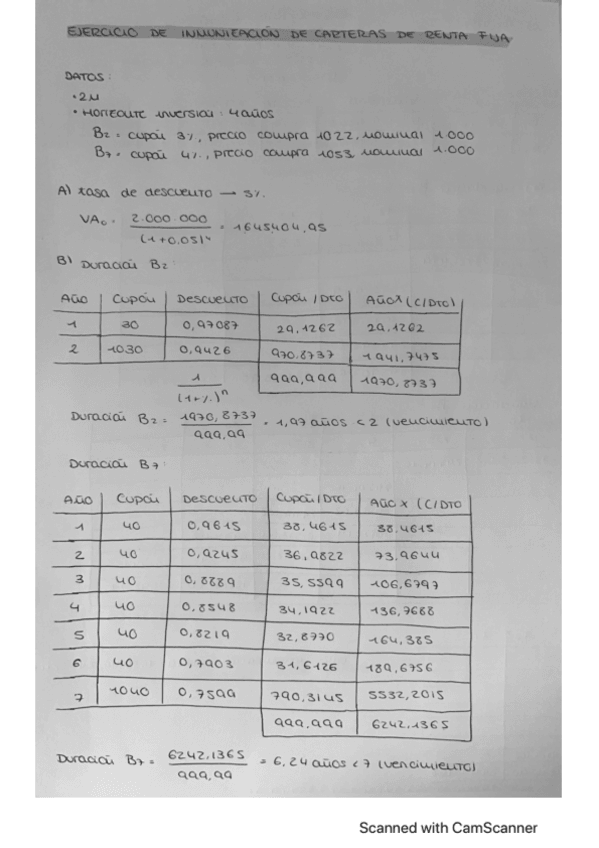 EJERCICIO DE INMUNIZACIÓN DE CARTERAS DE RENTA FIJA
DATOS:
• 2M
• HORIZONTE INVERSIÓN: 4 años
B2 = cupón 3%, precio compra 1022, nominal 1.000
B7 = cupón 4%, precio compra 1053, nominal 1.000
A) tasa de descuento → 5%.
VA0 = 2.000.000 / (1+0.05)⁴ = 1645404,95
B) Duración B2:
AÑO CUPÓN DESCUENTO CUPÓN/DTO AÑO x (C/DTO)
1 30 0,97087 29,1262 29,1262
2 1030 0,9426 970.8737 1941,7475
999,999 1970,8737
1 / (1+%)ⁿ
Duración B2 = 1970,8737 / 999,99 = 1,97 años < 2 (vencimiento)
Duración B7:
AÑO CUPÓN DESCUENTO CUPÓN/DTO AÑO x (C/DTO
1 40 0,9615 38,4615 38,4615
2 40 0,9245 36,9822 73,9644
3 40 0,8889 35,5599 106,6797
4 40 0,8548 34,1922 136,7688
5 40 0,8219 32,8770 164,385
6 40 0,7903 31,6126 189,6756
7 1040 0,7599 790,3145 5532,2015
999,999 6242,1365
Duración B7 = 6242,1365 / 999,99 = 6,24 años < 7 (vencimiento)
Scanned with CamScanner